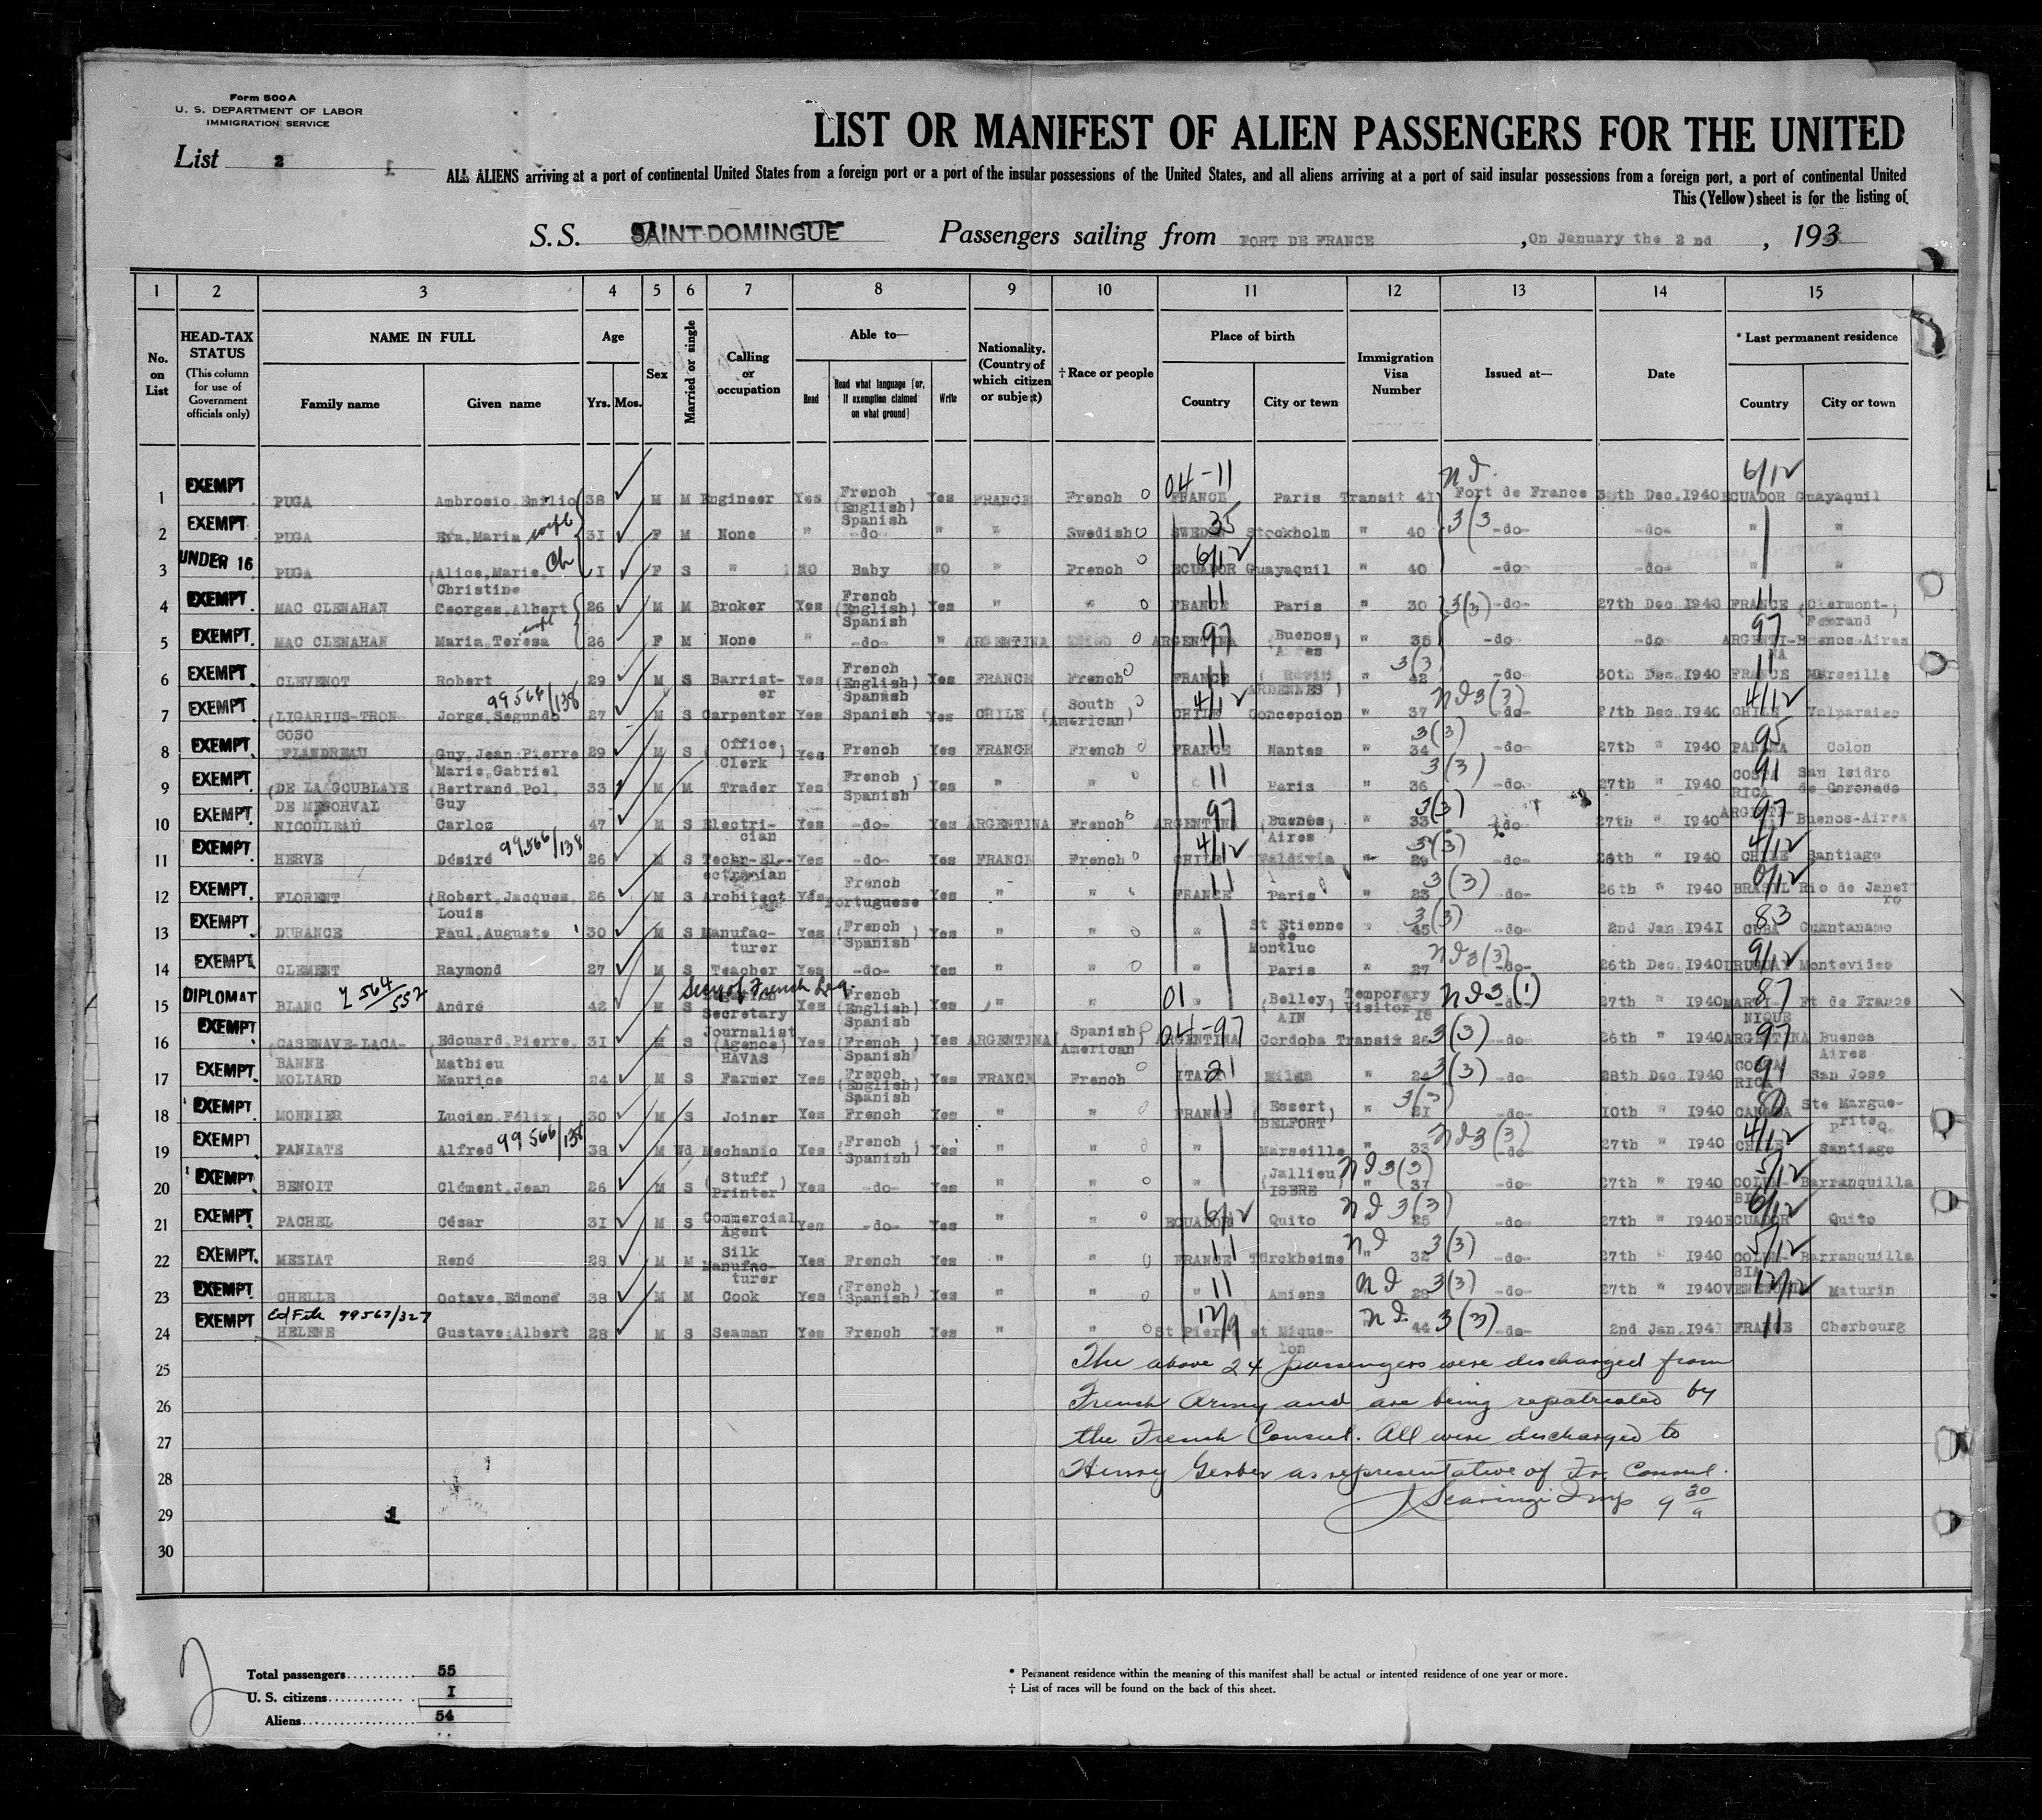 Form 500 A
U. S. DEPARTMENT OF LABOR
IMMIGRATION SERVICE
List 2
LIST OR MANIFEST OF ALIEN PASSENGERS FOR THE UNITED
ALL ALIENS arriving at a port of continental United States from a foreign port or a port of the insular possessions of the United States, and all aliens arriving at a port of said insular possessions from a foreign port, a port of continental United
This (Yellow) sheet is for the listing of
S.S. SAINT-DOMINGUE Passengers sailing from FORT DE FRANCE , On January the 2 nd , 193
1 2 3 4 5 6 7 8 9 10 11 12 13 14 15
No. on List
HEAD-TAX STATUS (This column for use of Government officials only)
NAME IN FULL Family name Given name
Age Yrs. Mos.
Sex
Married or single
Calling or occupation
Able to— Read Read what language [or, if exemption claimed on what ground] Write
Nationality. (Country of which citizen or subject)
† Race or people
Place of birth Country City or town
Immigration Visa Number
Issued at—
Date
* Last permanent residence Country City or town
1 EXEMPT PUGA Ambrosio, Emilio 38 M M Engineer Yes French (English) Spanish Yes FRANCE French 04-11 FRANCE Paris Transit 41 Fort de France 30th Dec. 1940 6/12 ECUADOR Guayaquil
2 EXEMPT PUGA Eva, Maria wife 31 F M None " -do- " " Swedish 35 SWEDEN Stockholm " 40 3(3 -do- -do- " "
3 UNDER 16 PUGA (Alice, Marie, Christine Ch 1 F S " NO Baby NO " French 6/12 ECUADOR Guayaquil " 40 -do- -do- " "
4 EXEMPT MAC CLENAHAN Georges, Albert 26 M M Broker Yes French (English) Spanish Yes " " 11 FRANCE Paris " 30 3(3) -do- 27th Dec. 1940 11 FRANCE (Clermont-Ferrand
5 EXEMPT MAC CLENAHAN Maria, Teresa wife 26 F M None " -do- " ARGENTINA 97 ARGENTINA (Buenos Aires " 35 -do -do 97 ARGENTINA Buenos-Aires
6 EXEMPT CLEVENOT Robert 29 M S Barrister Yes French (English) Spanish Yes FRANCE French 11 FRANCE ARDENNES) " 42 3(3 -do 30th Dec. 1940 11 FRANCE Marseille
7 EXEMPT (LIGARIUS-TRONCOSO Jorge, Segundo 99566/138 27 M S Carpenter Yes Spanish Yes CHILE (South American) 4/12 CHILE Concepcion " 37 nd 3(3) -do- 27th Dec. 1940 4/12 CHILE Valparaiso
8 EXEMPT FLANDREAU Guy, Jean, Pierre 29 M S (Office) Clerk Yes French Yes FRANCE French 11 FRANCE Nantes " 34 3(3) -do- 27th " 1940 95 PANAMA Colon
9 EXEMPT (DE LA GOUBLAYE DE MENORVAL Marie, Gabriel (Bertrand, Pol, Guy 33 M M Trader Yes French Spanish) Yes " " 11 Paris " 36 3(3) -do- 27th " 1940 91 COSTA RICA San Isidro de Coronado
10 EXEMPT NICOULEAU Carlos 47 M S Electrician Yes -do- Yes ARGENTINA French 97 ARGENTINA (Buenos) Aires " 33 3(3) -do 27th " 1940 97 Buenos-Aires
11 EXEMPT HERVE Désiré 99566/138 26 M S Yes -do- Yes FRANCE French 4/12 CHILE Valdivia " 29 3(3) -do- 26th " 1940 4/12 CHILE Santiago
12 EXEMPT FLORENT (Robert, Jacques, Louis 26 M S Architect Yes French Portuguese Yes " " 11 FRANCE Paris " 23 3(3) -do- 26th " 1940 0/12 BRASIL Rio de Janeiro
13 EXEMPT DURANCE Paul, Auguste 30 M S Manufacturer Yes (French Spanish) Yes " " " St Etienne de Montluc " 45 3(3) -do- 2nd Jan 1941 83 CUBA Guantanamo
14 EXEMPT CLEMENT Raymond 27 M S Teacher Yes -do- Yes " " " Paris " 27 nd 3(3) -do- 26th Dec. 1940 9/12 URUGUAY Montevideo
15 DIPLOMAT BLANC 564/552 André 42 M S Secy of French Leg. Secretary Yes French (English) Spanish Yes " " 01 " (Belley) AIN Temporary Visitor 18 nd 3(1) -do- 27th " 1940 87 MARTINIQUE Ft de France
16 EXEMPT (CASENAVE-LACABANNE (Edouard, Pierre, Mathieu 31 M S Journalist (Agence) HAVAS Yes (French) Spanish Yes ARGENTINA (Spanish American) 04-97 ARGENTINA Cordoba Transit 26 3(3) -do 26th " 1940 97 ARGENTINA Buenos Aires
17 EXEMPT MOLIARD Maurice 24 M S Farmer Yes French (English) Spanish Yes FRANCE French 21 ITALY Milan " 24 3(3) -do- 28th Dec. 1940 91 COSTA RICA San Jose
18 EXEMPT MONNIER Lucien, Félix 30 M S Joiner Yes French Yes " " 11 FRANCE (Essert) BELFORT " 21 -do- 10th " 1940 80 CANADA Ste Marguerite P. Q.
19 EXEMPT PANIATE Alfred 99566/138 38 M Wd Mechanic Yes (French) Spanish Yes " " " Marseille " 33 nd 3(3) -do- 27th " 1940 4/12 CHILE Santiago
20 EXEMPT BENOIT Clément, Jean 26 M S (Stuff) Printer Yes -do- Yes " " " (Jallieu) ISERE " 31 nd 3(3) -do- 27th " 1940 5/12 COLOMBIA Barranquilla
21 EXEMPT PACHEL César 31 M S Commercial Agent Yes -do- Yes " " 6/12 ECUADOR Quito " 25 nd 3(3) -do- 27th " 1940 6/12 ECUADOR Quito
22 EXEMPT MEZIAT René 28 M M Silk Manufacturer Yes French Yes " " 11 FRANCE Türckheime " 32 nd 3(3) -do- 27th " 1940 5/12 COLOMBIA Barranquilla
23 EXEMPT CHELLE Octave, Edmond 38 M M Cook Yes (French) Spanish Yes " " 11 " Amiens 28 nd 3(3) -do- 27th " 1940 12/12 VENEZUELA Maturin
24 EXEMPT Ed File 99567/327 HELENE Gustave, Albert 28 M S Seaman Yes French Yes " " 12/9 St Pierre et Miquelon 44 nd. 3(3) -do- 2nd Jan. 1941 11 FRANCE Cherbourg
25 The above 24 passengers were discharged from
26 French Army and are being repatriated by
27 the French Consul. All were discharged to
28 Henry Gerber as representative of Fr. Consul.
29 9 30/a
30
Total passengers 55
U. S. citizens I
Aliens 54
* Permanent residence within the meaning of this manifest shall be actual or intented residence of one year or more.
† List of races will be found on the back of this sheet.